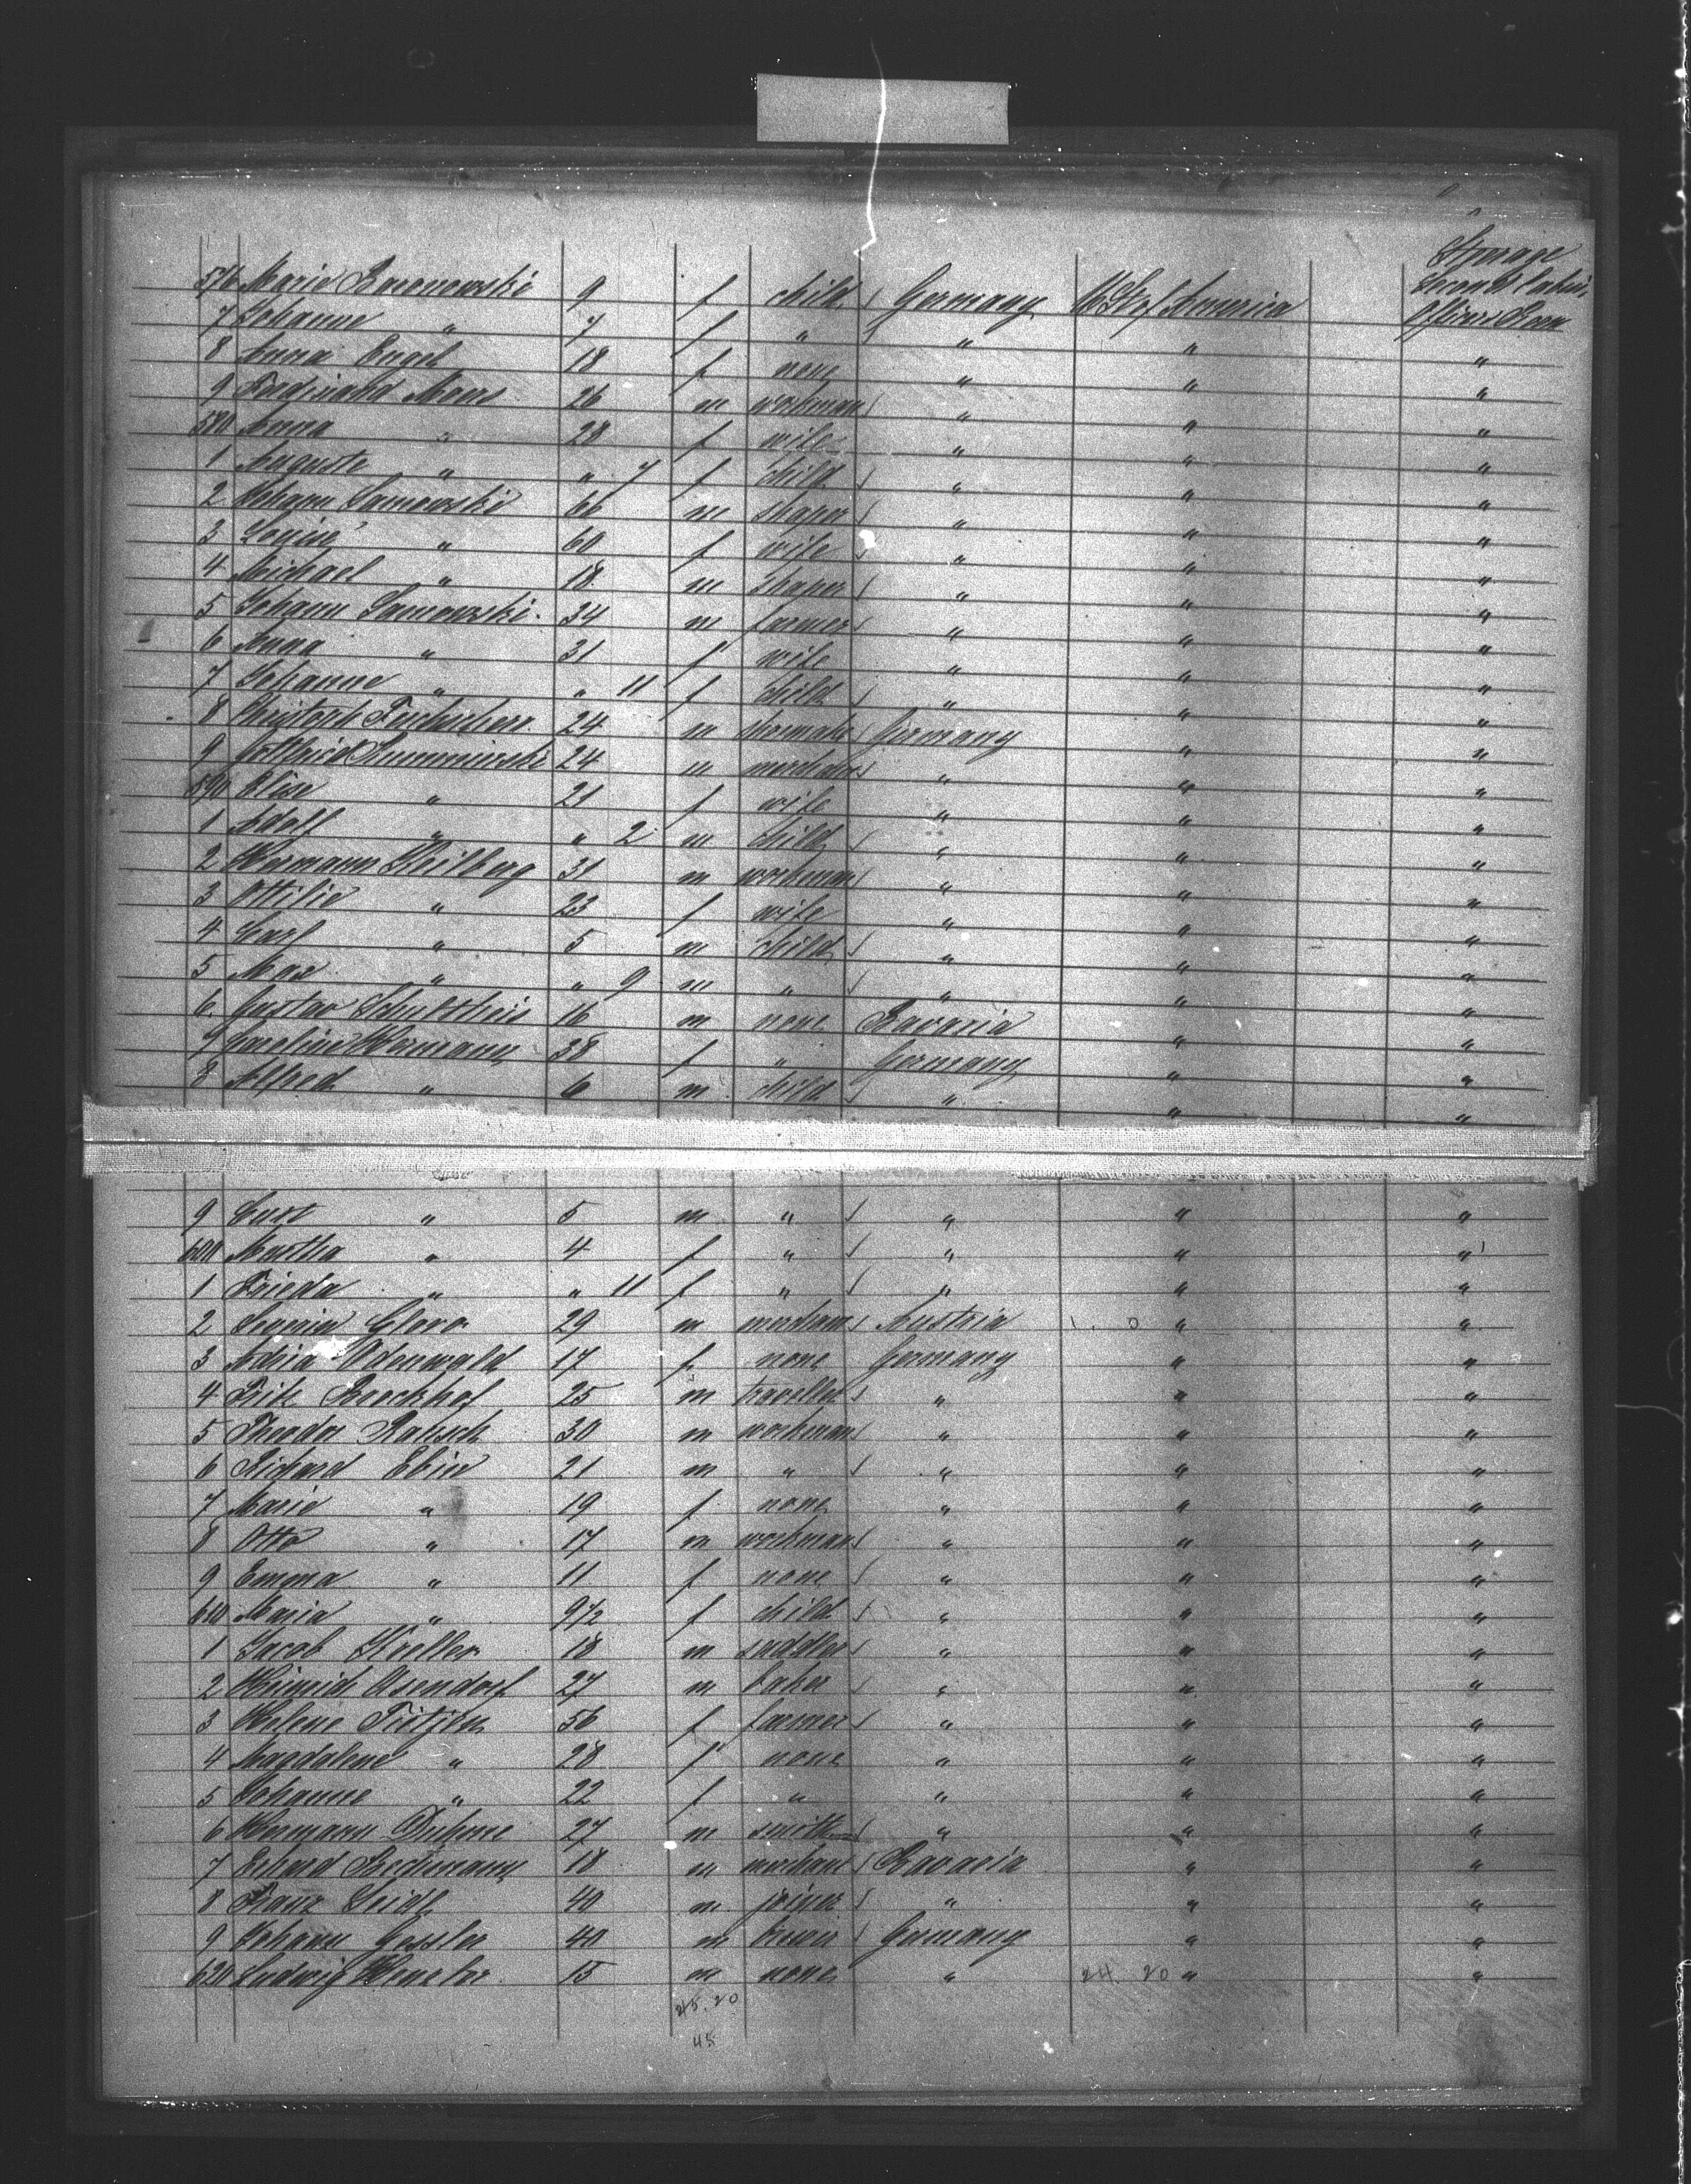 Steerage
576 Marie Baronowski 9 f child Germany U St of America Second Cabin
7 Johanne " 7 f " " " Officers Room
8 Anna Engel 18 f none " " "
9 Ferdinand 26 m workman " " "
580 Anna " 28 f wife " " "
1 Auguste " " 7 f child " " "
2 Johann 66 m " " "
3 Louise " 60 f wife " " "
4 Michael " 18 m " " "
5 Johann 34 m farmer " " "
6 Anna " 31 f wife " " "
7 Johanne " " 11 f child " " "
8 Christoph 24 m shoemaker Germany " "
9 Gottfried 24 m " " "
590 Elise " 21 f wife " " "
1 Adolf " " 2 m child " " "
2 Hermann Heilberg 31 m workman " " "
3 Ottilie " 23 f wife " " "
4 Carl " 5 m child " " "
5 Max " " 9 m " " " "
6 Gustav Schultheis 16 m none Bavaria " "
7 Caroline Hermann 38 f " Germany " "
8 Alfred " 6 m child " " "
9 Curt " 5 m " " " "
600 Martha " 4 f " " " "
1 Frieda " " 11 f " " " "
2 29 m Austria " "
3 Odenwald 17 f none Germany " "
4 Fritz Brockhof 25 m traveller " " "
5 Theodor Rausch 30 m workman " " "
6 Richard Ebin 21 m " " " "
7 Marie " 19 f none " " "
8 Otto " 17 m workman " " "
9 Emma " 11 f none " " "
610 Maria " 9 1/2 f child " " "
1 Jacob Kreller 18 m saddler " " "
2 Heinrich Osendorf 27 m baker " " "
3 Helene Tietjen 56 f farmer " " "
4 Magdalene " 28 f none " " "
5 Johanne " 22 f " " " "
6 Hermann Duhme 27 m smith " " "
7 Erhard Bechmann 18 m merchant Bavaria " "
8 Franz Seidl 40 m joiner " " "
9 Johann Gessler 40 m Germany " "
620 Ludwig 15 m none " 24. 20 " "
25. 20
45